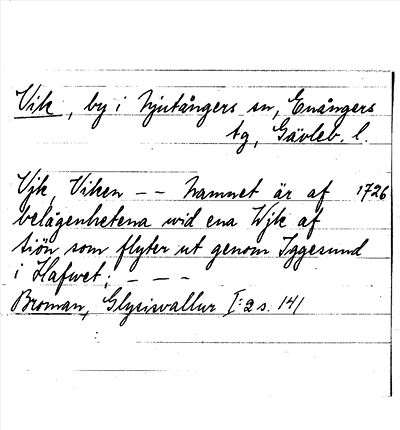 Vik, by i Njutångers sn, Enångers
tg, Gävleb. l.
Vjk, Viken -- Namnet är af 1726
belägenhetena wid ena Wjk af
siön som flyter ut genom Iggesund
i Hafwet; ---
Broman, Glysisvallur I:2 s. 141